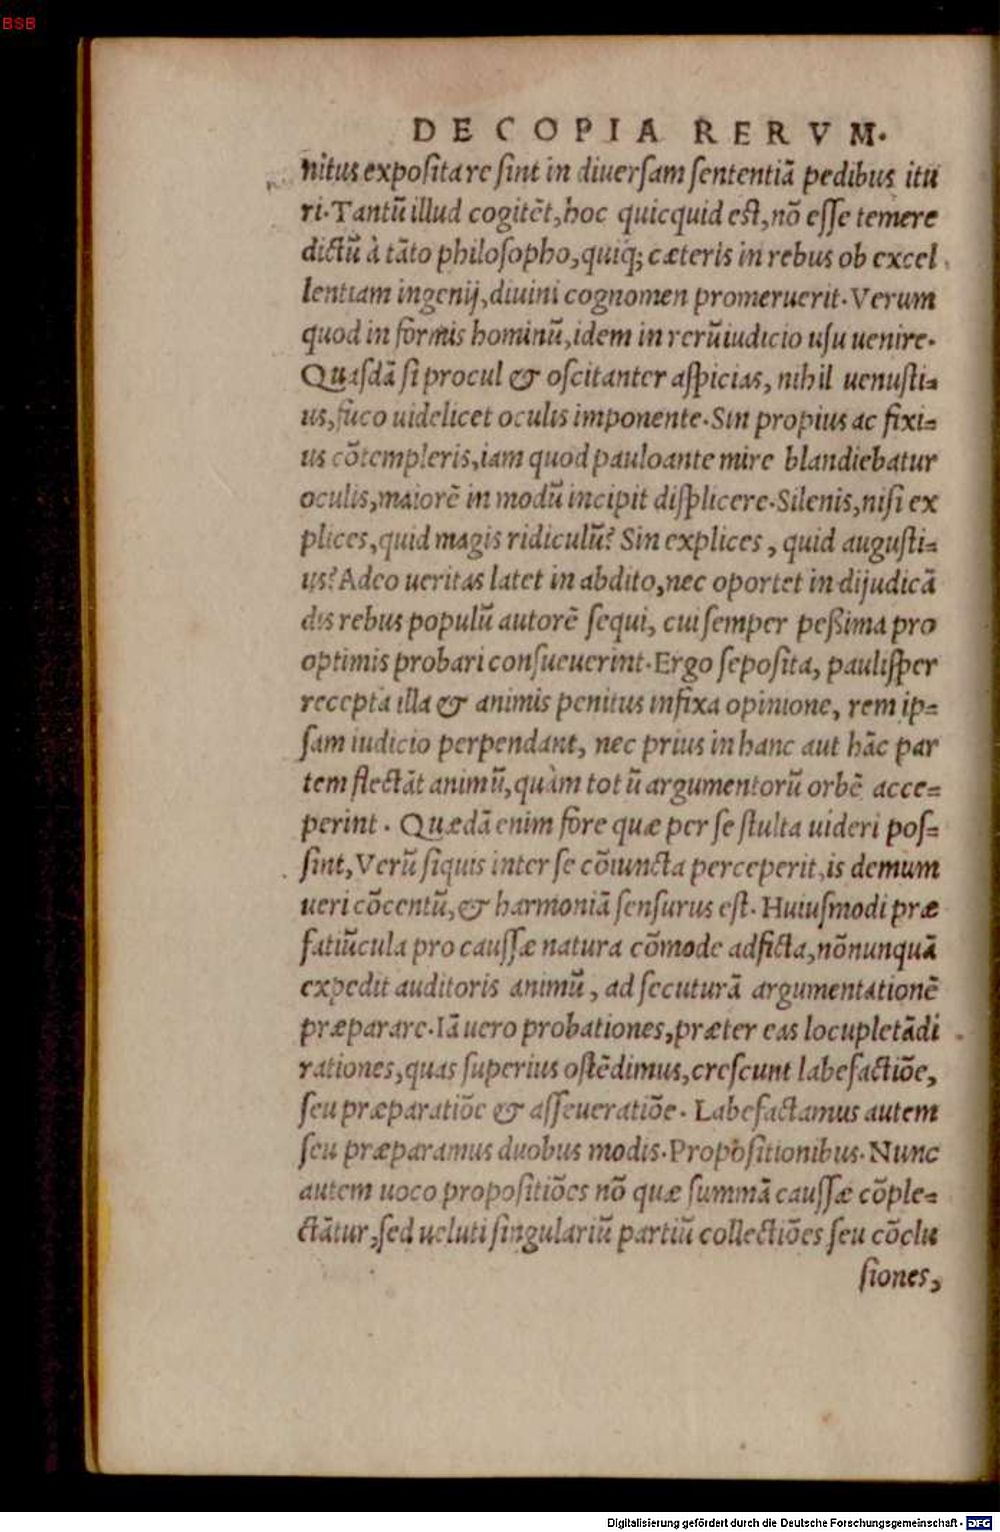 BSB
DE COPIA RERVM.
nitus exposita re sint in diuersam sententiã pedibus itu
ri. Tantũ illud cogitẽt, hoc quicquid est, nõ esse temere
dictũ à tãto philosopho, quiq; cæteris in rebus ob excel
lentiam ingenij, diuini cognomen promeruerit. Verum
quod in formis hominũ, idem in rerũ iudicio usu uenire.
Quasdã si procul & oscitanter aspicias, nihil uenusti=
us, fuco uidelicet oculis imponente. Sin propius ac fixi=
us cõtempleris, iam quod pauloante mire blandiebatur
oculis, maiorẽ in modũ incipit displicere. Silenis, nisi ex
plices, quid magis ridiculũ? Sin explices, quid augusti=
us? Adeo ueritas latet in abdito, nec oportet in dijudicã
dis rebus populũ autorẽ sequi, cui semper peßima pro
optimis probari consueuerint. Ergo seposita, paulisper
recepta illa & animis penitus infixa opinione, rem ip=
sam iudicio perpendant, nec prius in hanc aut hãc par
tem flectãt animũ, quàm tot ũ argumentorũ orbẽ acce=
perint. Quædã enim fore quæ per se stulta uideri pos=
sint, Verũ siquis inter se cõiuncta perceperit, is demum
ueri cõcentũ, & harmoniã sensurus est. Huiusmodi præ
fatiũcula pro caussæ natura cõmode adficta, nõnunquã
expedit auditoris animũ, ad secuturã argumentationẽ
præparare. Iã uero probationes, præter eas locupletãdi
rationes, quas superius ostẽdimus, crescunt labefactiõe,
seu præparatiõe & asseueratiõe. Labefactamus autem
seu præparamus duobus modis. Propositionibus. Nunc
autem uoco propositiões nõ quæ summã caussæ cõple=
ctãtur, sed ueluti singulariũ partiũ collectiões seu cõclu
siones,
Digitalisierung gefördert durch die Deutsche Forschungsgemeinschaft - DFG